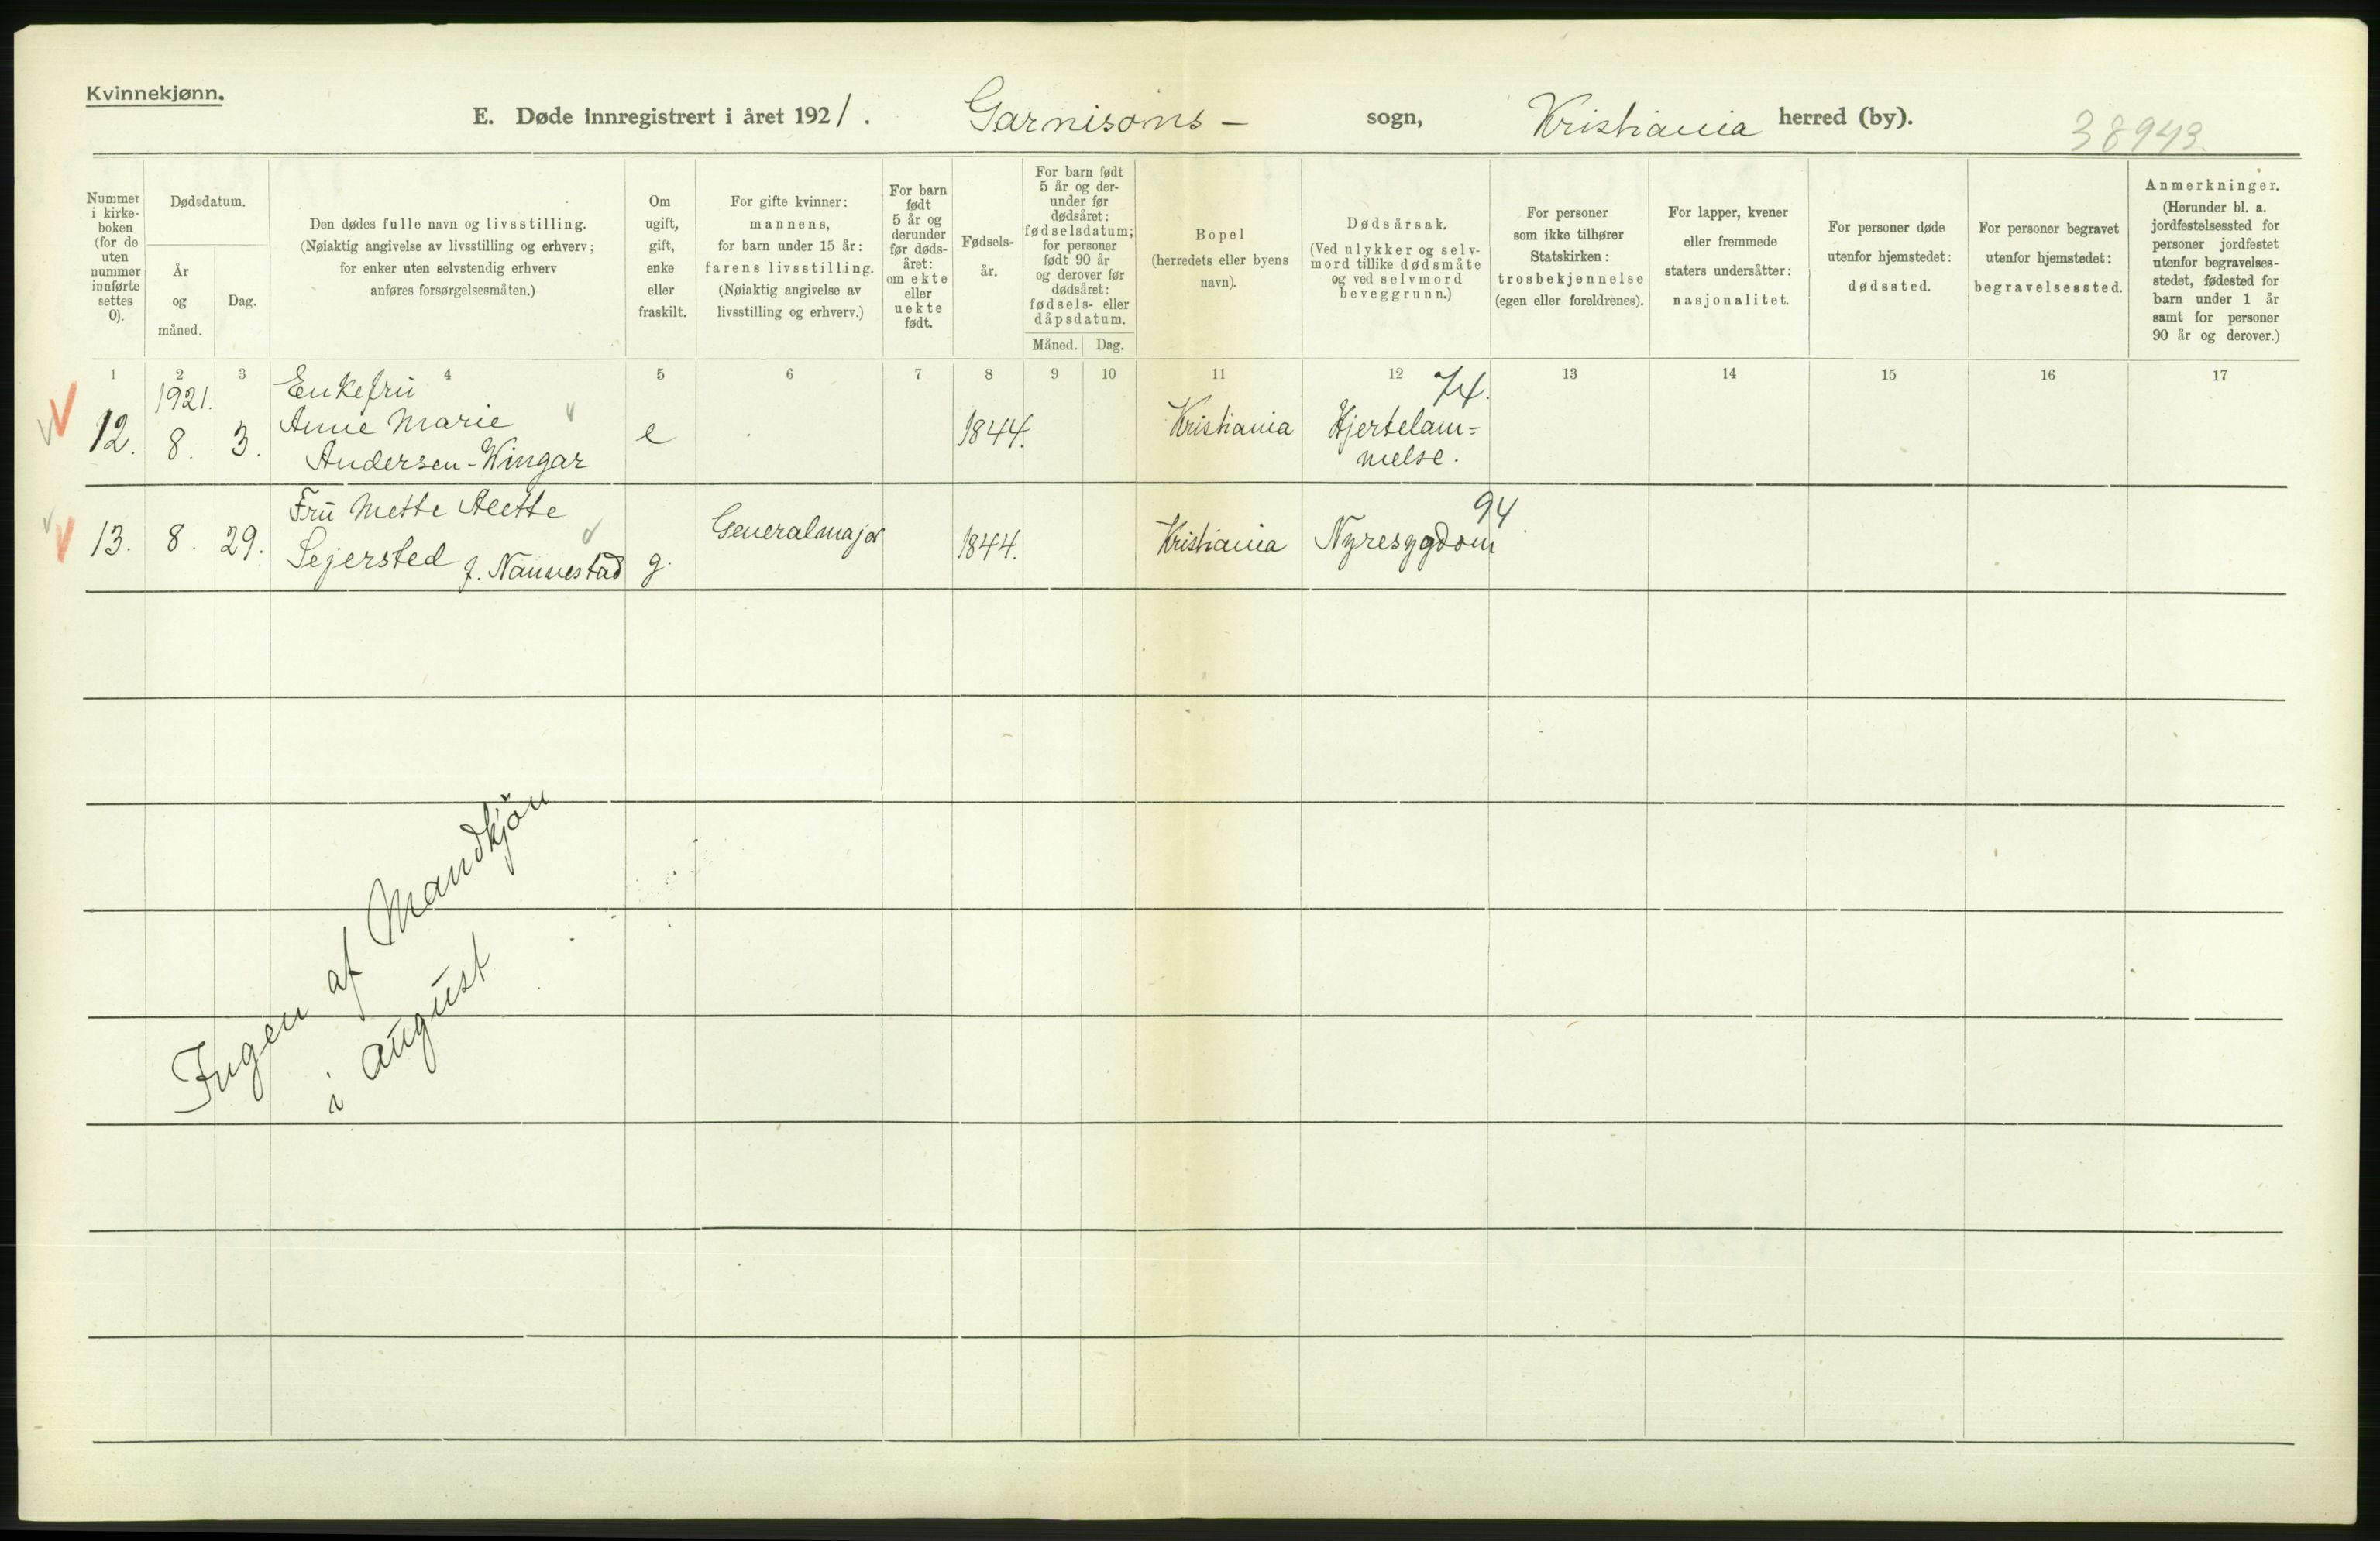 Kvinnekjønn.
E. Døde innregistrert i året 1921. Garnisons- sogn, Kristiania herred (by). 38943.
Nummer
i kirke-
boken
(for de
uten
nummer
innførte
settes
0).
Dødsdatum.
År
og
måned.
Dag.
Den dødes fulle navn og livsstilling.
(Nøiaktig angivelse av livsstilling og erhverv;
for enker uten selvstendig erhverv
anføres forsørgelsesmåten.)
Om
ugift,
gift,
enke
eller
fraskilt.
For gifte kvinner:
mannens,
for barn under 15 år:
farens livsstilling.
(Nøiaktig angivelse av
livsstilling og erhverv.)
For barn
født
5 år og
derunder
før døds-
året:
om ekte
eller
uekte
født.
Fødsels-
år.
For barn født
5 år og der-
under før
dødsåret:
fødselsdatum;
for personer
født 90 år
og derover før
dødsåret:
fødsels- eller
dåpsdatum.
Måned. Dag.
Bopel
(herredets eller byens
navn).
Dødsårsak.
(Ved ulykker og selv-
mord tillike dødsmåte
og ved selvmord
beveggrunn.)
For personer
som ikke tilhører
Statskirken:
trosbekjennelse
(egen eller foreldrenes).
For lapper, kvener
eller fremmede
staters undersåtter:
nasjonalitet.
For personer døde
utenfor hjemstedet:
dødssted.
For personer begravet
utenfor hjemstedet:
begravelsessted.
Anmerkninger.
(Herunder bl. a.
jordfestelsessted for
personer jordfestet
utenfor begravelses-
stedet, fødested for
barn under 1 år
samt for personer
90 år og derover.)
1 2 3 4 5 6 7 8 9 10 11 12 13 14 15 16 17
1921.
12. 8. 3.
Enkefru
Anne Marie
Andersen-Wingar
e
1844.
Kristiania
74.
Hjertelam=
melse.
13. 8. 29.
Fru Mette Alette
Sejersted f. Nannestad
g.
Generalmajor
1844.
Kristiania
94
Nyresygdom
Ingen af Mandkjøn
i august